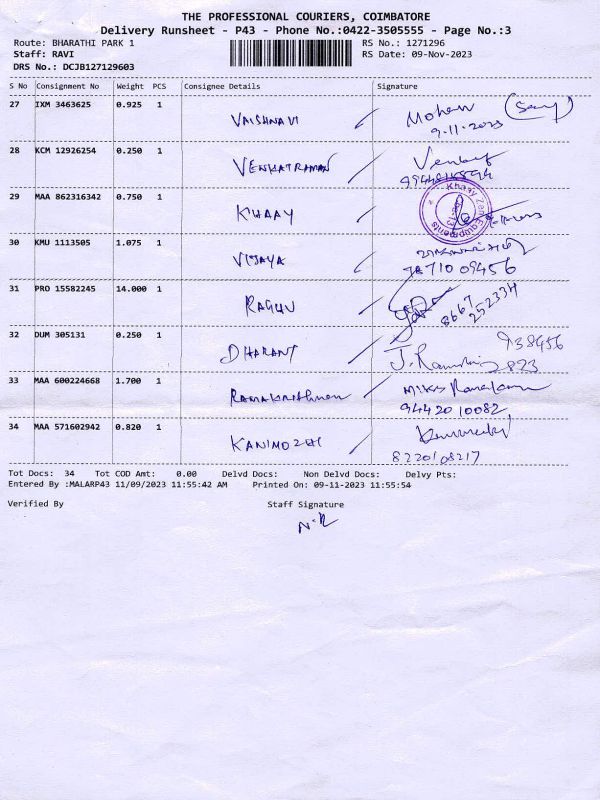 THE PROFESSIONAL COURIERS, COIMBATORE
Delivery Runsheet - P43 - Phone No.:0422-3505555 - Page No.:3
Route: BHARATHI PARK 1 RS No.: 1271296
Staff: RAVI RS Date: 09-Nov-2023
DRS No.: DCJB127129603
S No Consignment No Weight PCS Consignee Details Signature
27 IXM 3463625 0.925 1 VAISHNAVI Mohan
9.11.2023
28 KCM 12926254 0.250 1 VENKATRAMAN
29 MAA 862316342 0.750 1 KHAAY
Khaay Zen Equipments
30 KMU 1113505 1.075 1 VIJAYA
7871009456
31 PRO 15582245 14.000 1 RAGHU 8667
252334
32 DUM 305131 0.250 1 DHARANI J.
938456
2823
33 MAA 600224668 1.700 1 RAMAKRISHNAN
9442010082
34 MAA 571602942 0.820 1 KANIMOZHI
8220108217
Tot Docs: 34 Tot COD Amt: 0.00 Delvd Docs: Non Delvd Docs: Delvy Pts:
Entered By :MALARP43 11/09/2023 11:55:42 AM Printed On: 09-11-2023 11:55:54
Verified By Staff Signature
N.R